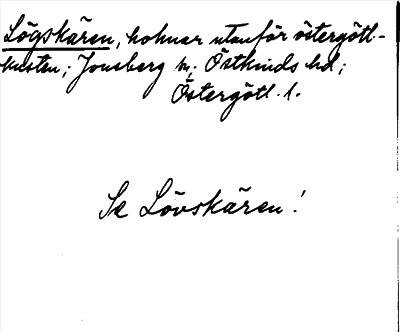 Lögskären, holmar utanför östergött-
kusten; Jonsberg sn; Östkinds hd;
Östergötl. l.
Se Lövskären!